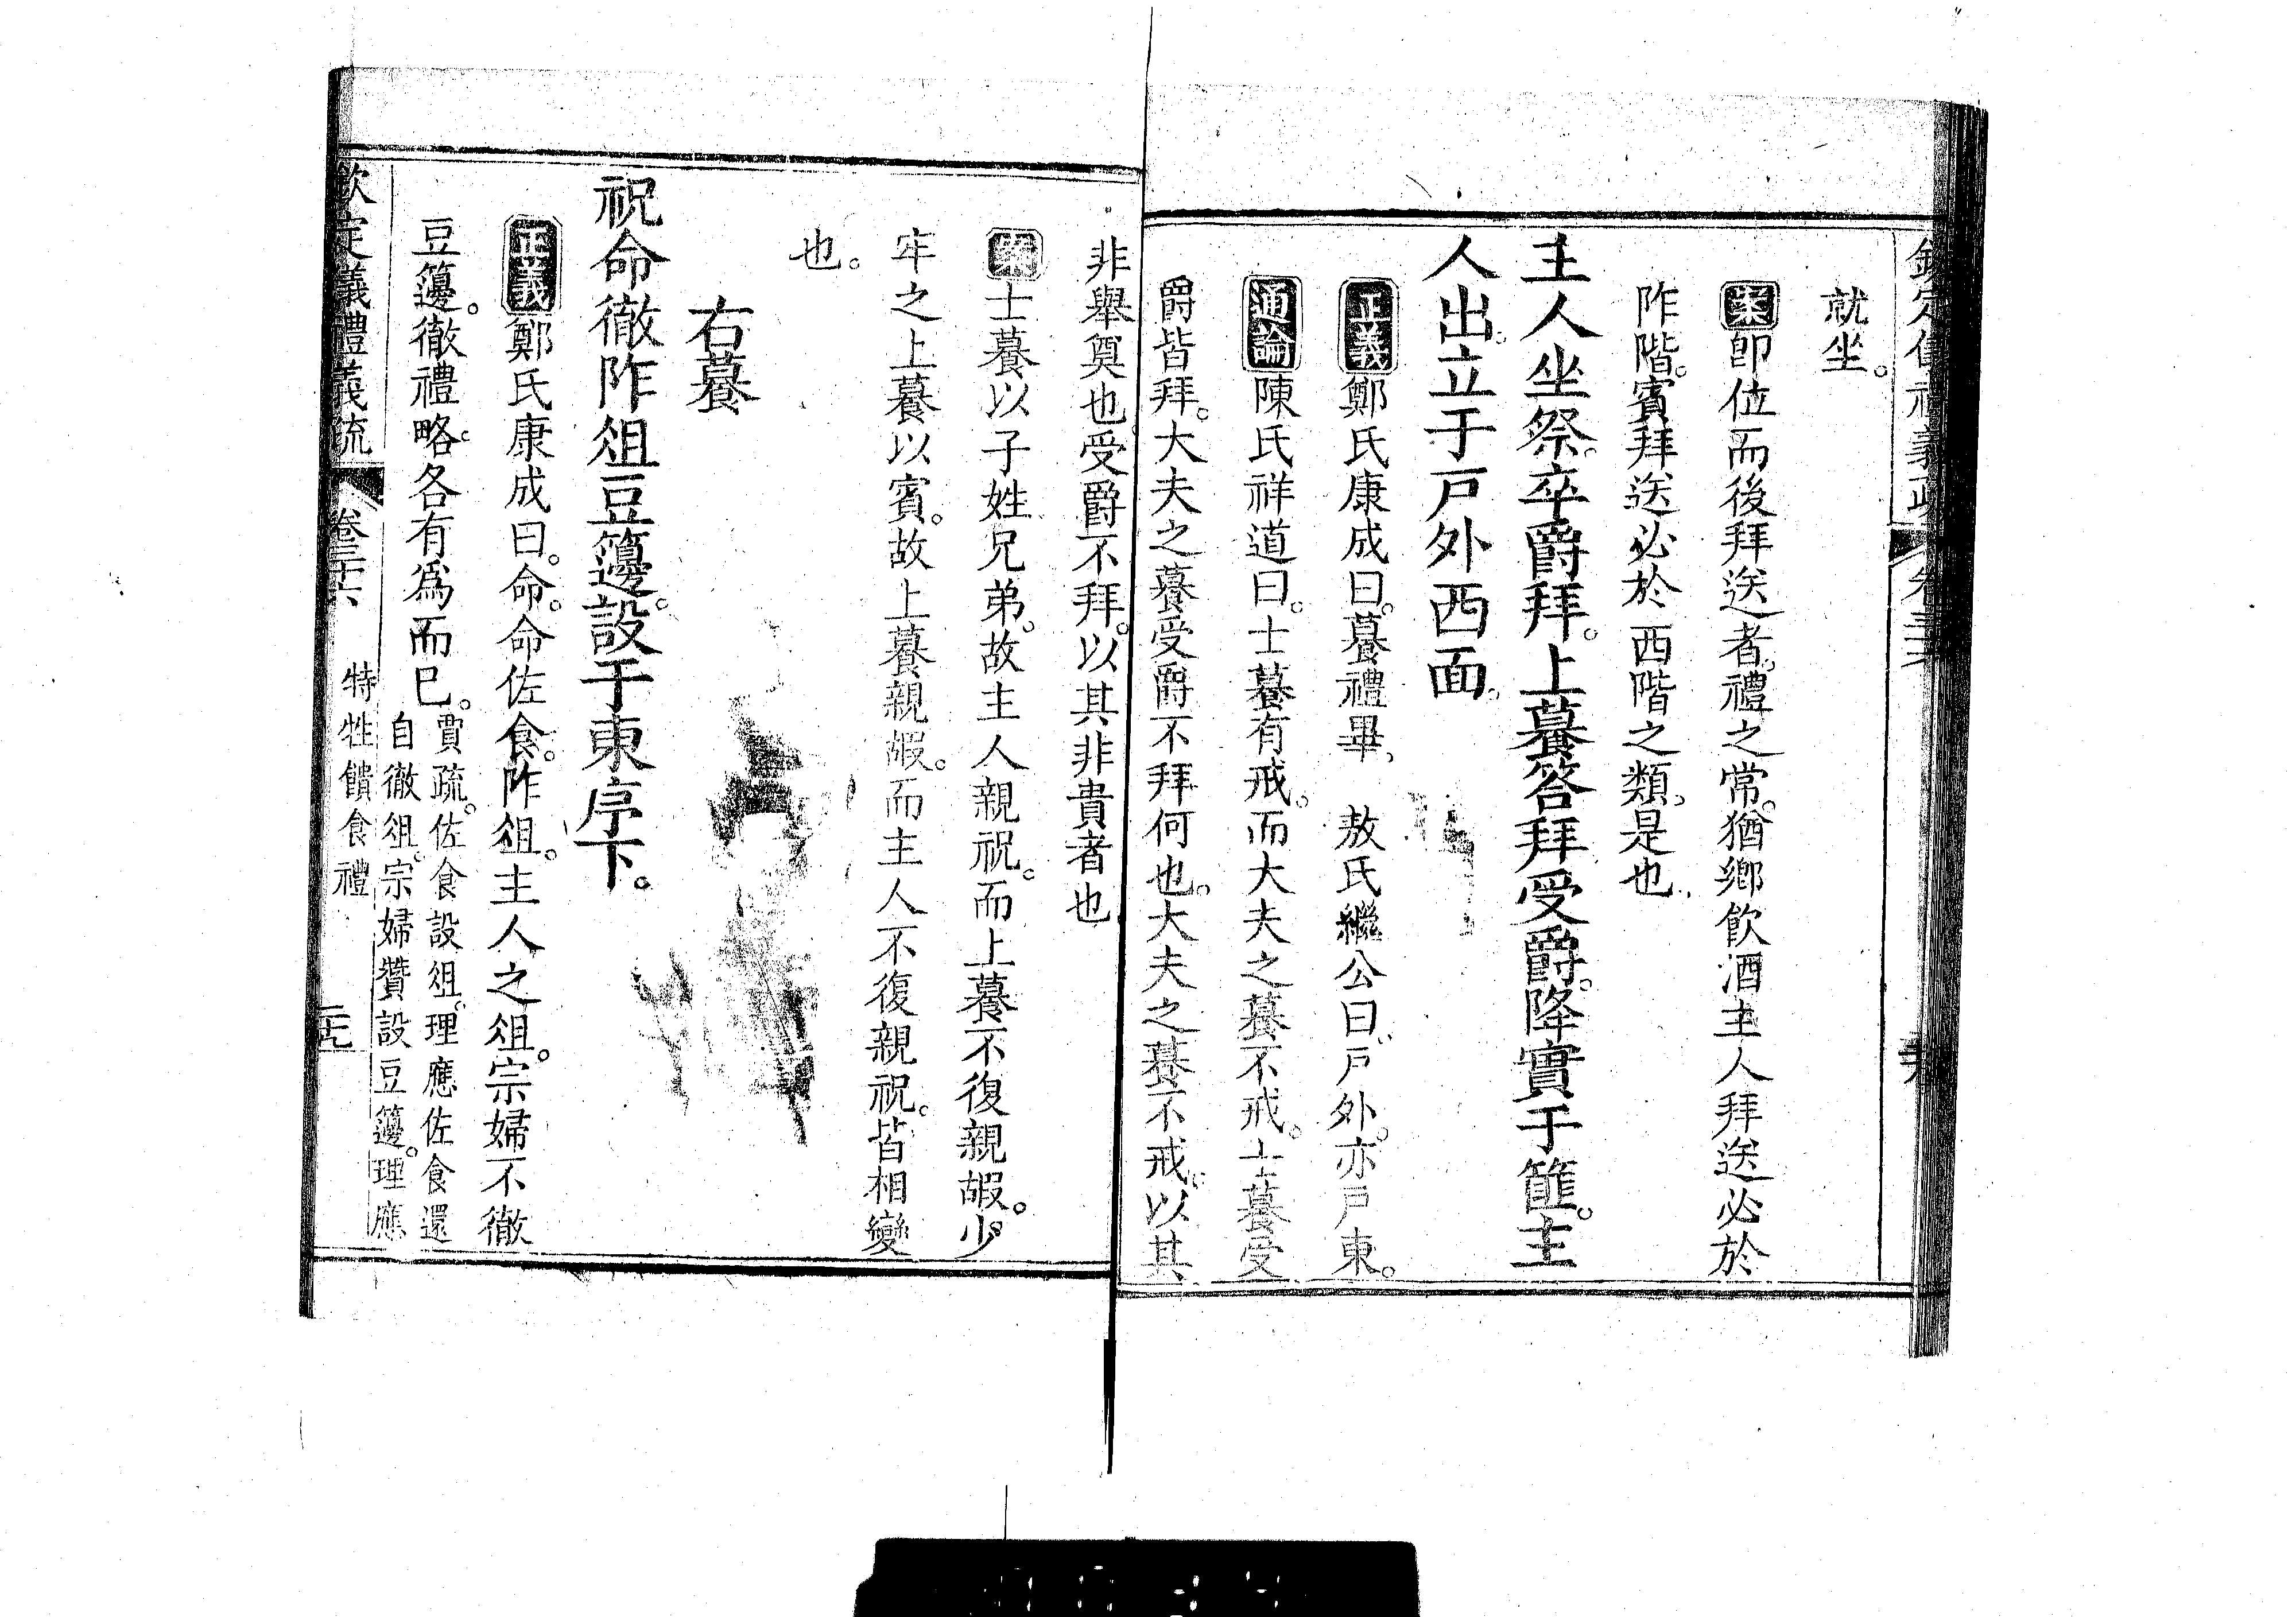 欽定儀禮義疏 卷三十六
就坐。
案即位而後拜送者。禮之常。猶鄉飲酒主人拜送必於
阼階。賓拜送必於西階之類。是也。
主人坐祭。卒爵拜。上養答拜受爵。降實于篚。主
人出。立于戶外西面。
正義鄭氏康成曰。養禮畢。 敖氏繼公曰。戶外。亦戶東。
通論陳氏祥道曰。士養有戒。而大夫之養不戒。士養受
爵皆拜。大夫之養受爵不拜何也。大夫之養不戒。以其
非舉奠也。受爵不拜。以其非貴者也
案士養以子姓兄弟。故主人親祝。而上養不復親嘏。少
牢之上養以賓。故上養親嘏。而主人不復親祝。皆相變
也。
右養
祝命徹阼俎豆籩。設于東序下。
正義鄭氏康成曰。命。命佐食。阼俎。主人之俎。宗婦不徹
豆籩。徹禮略。各有爲而已。
賈疏。佐食設俎。理應佐食還
自徹俎。宗婦贊設豆籩。理應
欽定儀禮義疏 卷三十六 特牲饋食禮 二十九